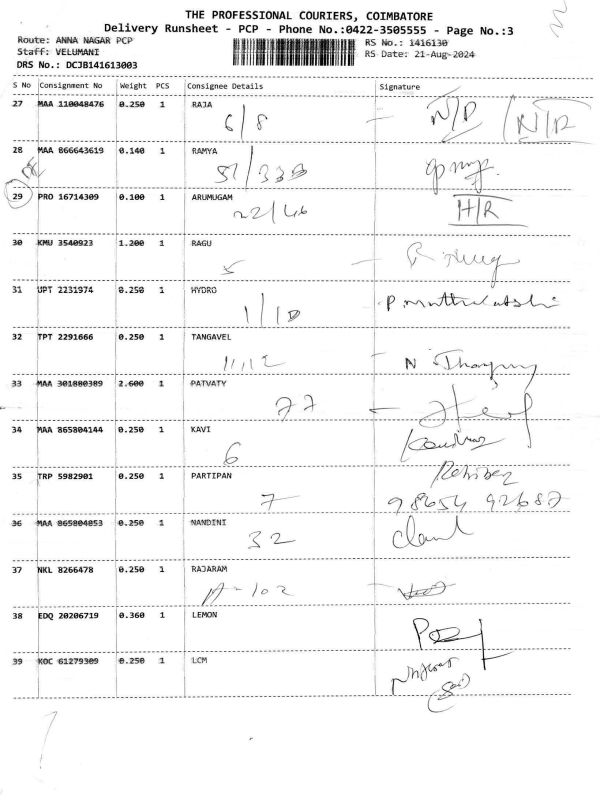 THE PROFESSIONAL COURIERS, COIMBATORE
Delivery Runsheet - PCP - Phone No.:0422-3505555 - Page No.:3
Route: ANNA NAGAR PCP RS No.: 1416130
Staff: VELUMANI RS Date: 21-Aug-2024
DRS No.: DCJB141613003
S No Consignment No Weight PCS Consignee Details Signature
27 MAA 110048476 0.250 1 RAJA
6/8 N/D N/R
28 MAA 866643619 0.140 1 RAMYA
51/333
29 PRO 16714309 0.100 1 ARUMUGAM
22/46 H/R
30 KMU 3540923 1.200 1 RAGU
31 JPT 2231974 0.250 1 HYDRO
1/10
32 TPT 2291666 0.250 1 TANGAVEL
11,12 N
33 MAA 301880389 2.600 1 PATVATY
77
34 MAA 865804144 0.250 1 KAVI
6
35 TRP 5982901 0.250 1 PARTIPAN
7 98654 92687
36 MAA 865804853 0.250 1 NANDINI
32
37 NKL 8266478 0.250 1 RAJARAM
A-102
38 EDQ 20206719 0.360 1 LEMON
39 KOC 61279309 0.250 1 LCM